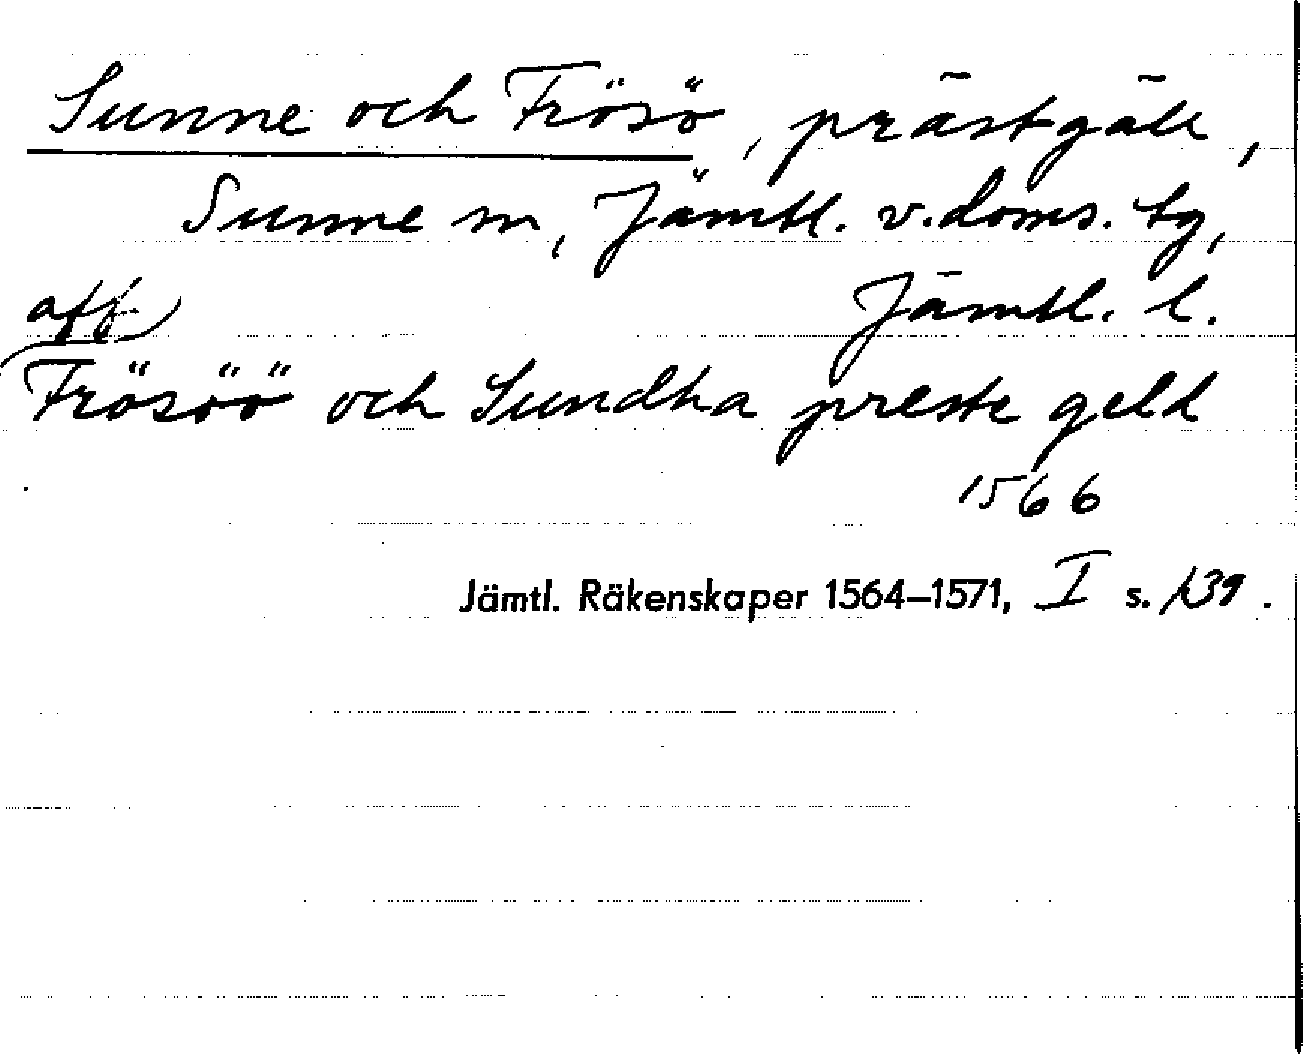 Sunne och Frösö, prästgäll,
Sunne sn, Jämtl. v. doms. tg,
Jämtl. l.
aff
Frösöö och Sundha preste geld
1566
Jämtl. Räkenskaper 1564–1571, I s. 139.